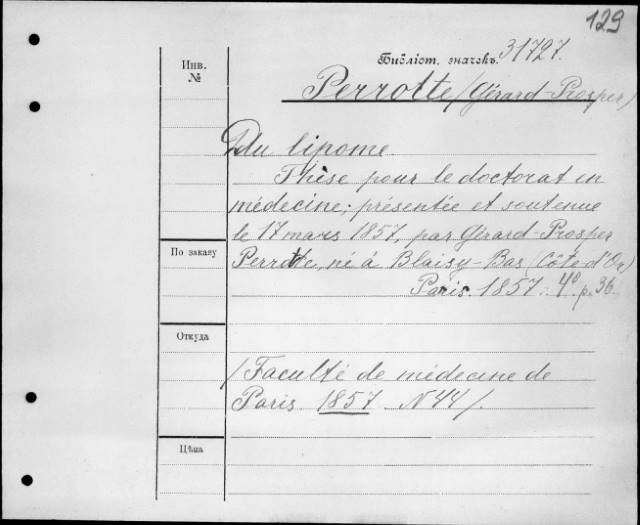 129
Инв.
№
Библіот. значекъ. 31727.
Perrotte /Gérard-Prosper/
Du lipome.
Thèse pour le doctorat en
médecine; présentée et soutenue
le 17 mars 1857, par Gérard-Prosper
По заказу
Perrotte, né à Blaisy-Bas (Côte-d'Or)
Paris. 1857. 4° p. 36.
Откуда
/Faculté de médecine de
Paris. 1857 N 44/.
Цѣна